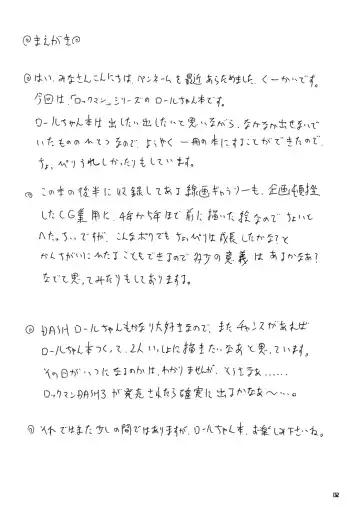 ◎まえがき◎
◎はい、みなさんこんにちは、ペンネームを最近あらためました、くーかいです。
今回は、「ロックマン」シリーズのロールちゃん本です。
ロールちゃん本は出したい出したいと思いながら、なかなか出せないで
いたもののひとつなので、ようやく一冊の本にすることができたので、
ちょっぴりうれしかったりもしています。
◎この本の後半に収録してある線画ギャラリーも、企画頓挫
したCG集用に、4年から5年ほど前に描いた絵なのでちょいと
へた。ちぃですが、こんなボクでもちょっぴりは成長したかな?と
かんちがいにひたることもできるので多少の意義はあるかなぁ?
なでと思ってみたりもしております。
◎DASHロールちゃんもかなり大好きなので、またチャンスがあれば
ロールちゃん本つくって、2人いっしょに描きたいなあと思っています。
その日がいつになるのかは、わかりませんが、とりあえず......
ロックマンDASH3が発売されたら確実に出るかなあ〜…。
◎それではまた少しの間ではありますが、ロールちゃん本、お楽しみ下さいね。
02